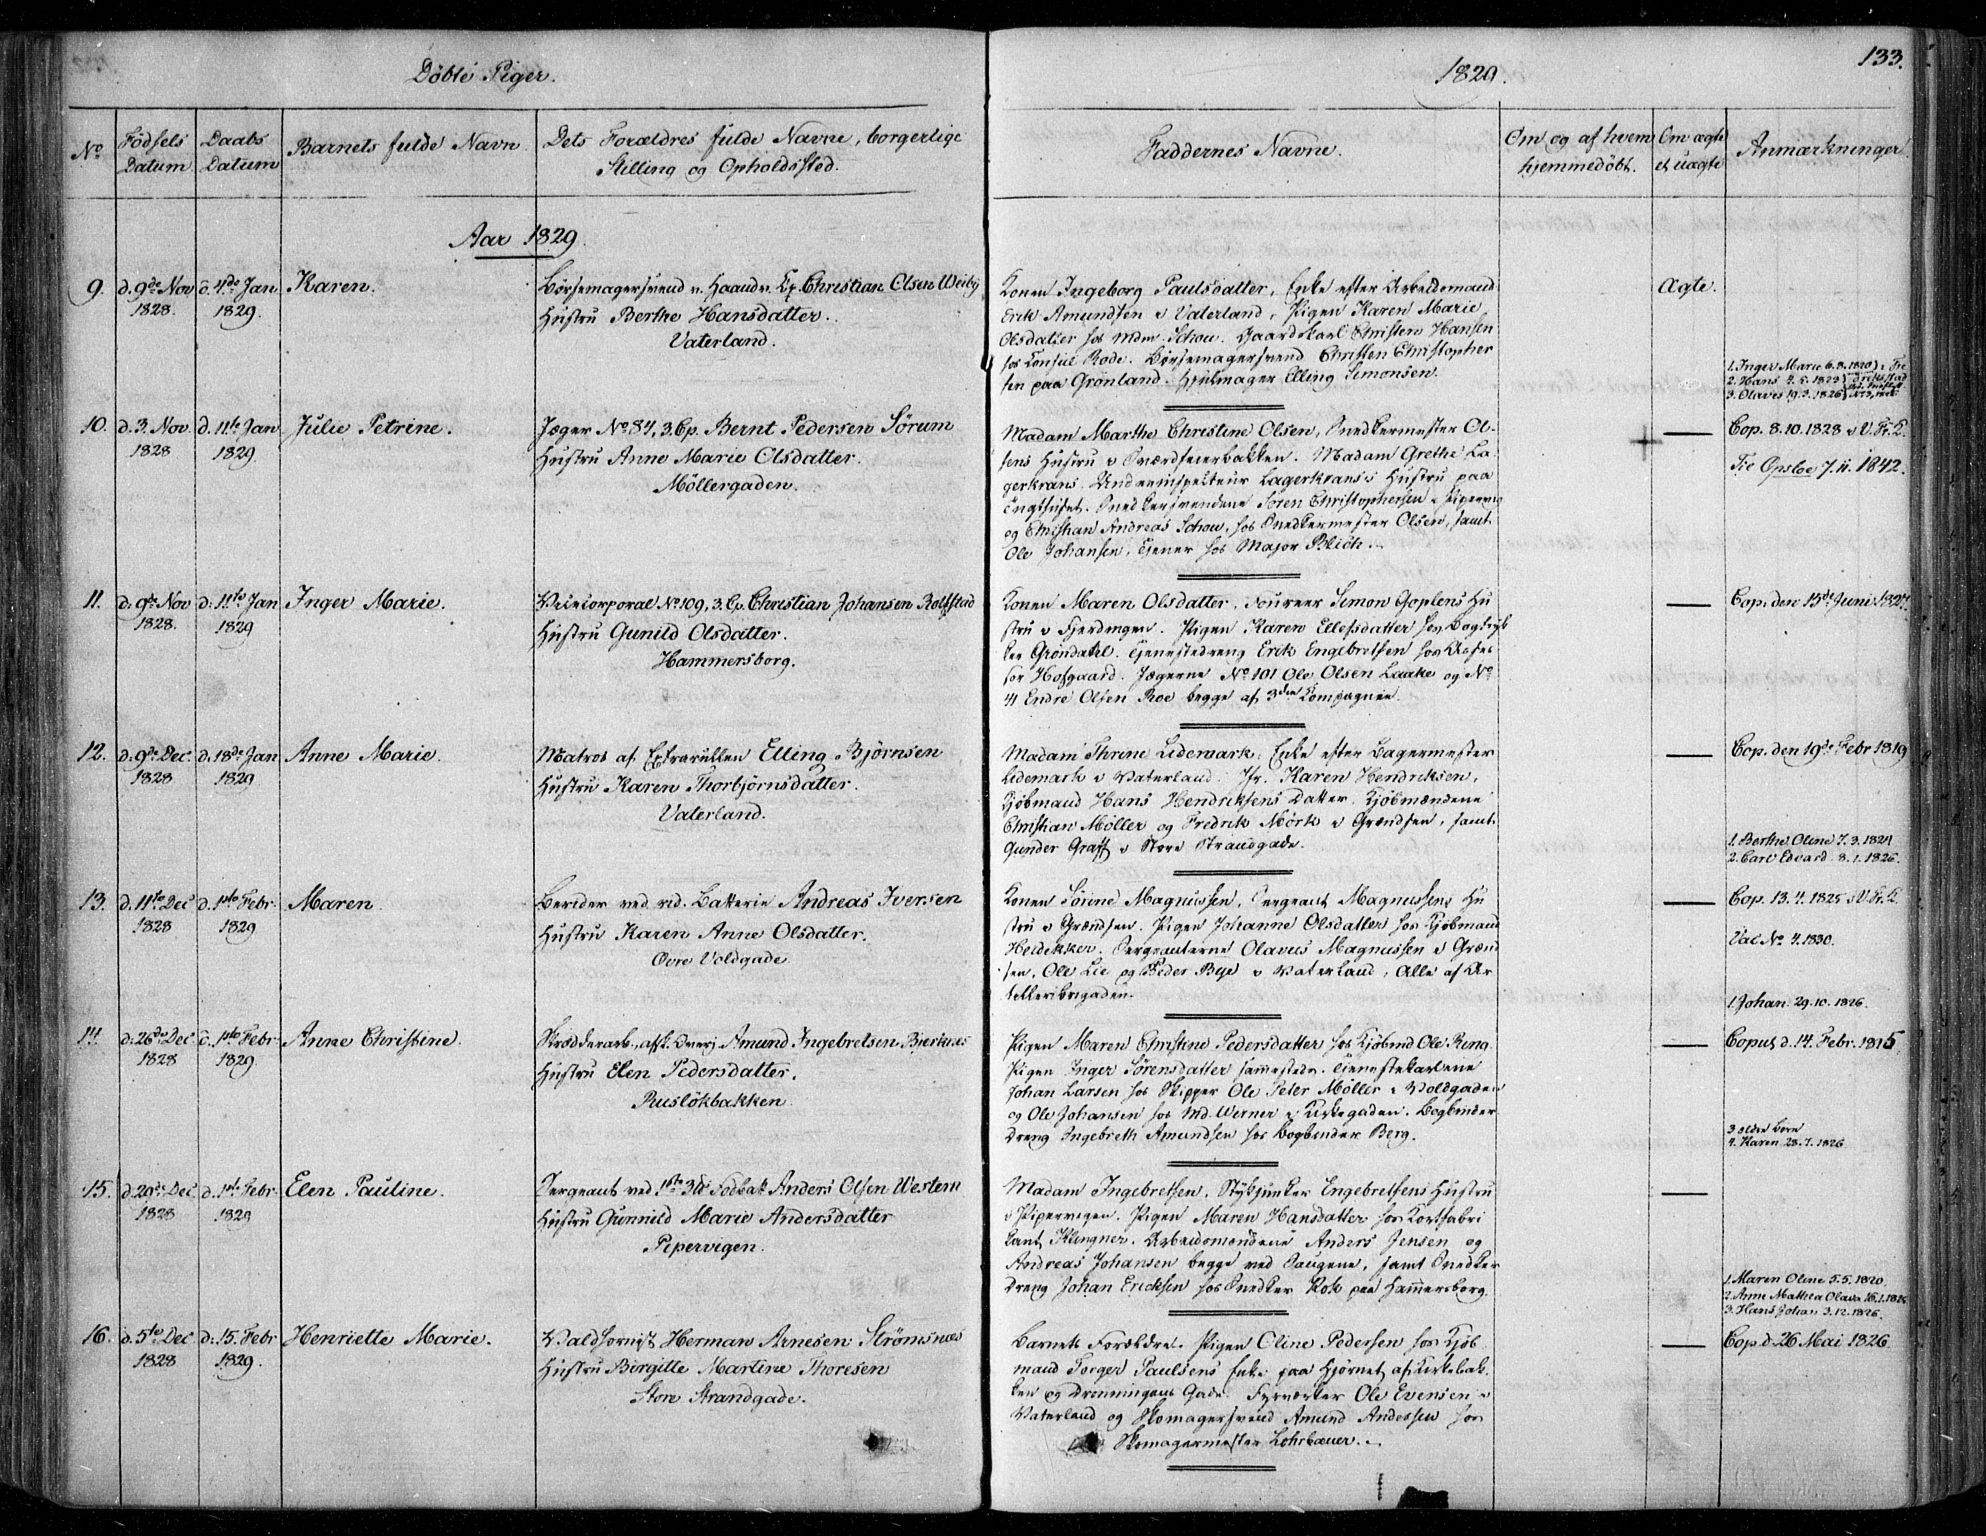 Döbte Piger.
1829.
133.
No
Födsels Datum
Daabs Datum
Barnets fulde Navn
Dets Forældres fulde Navne, borgerlige Stilling og Opholdssted.
Faddernes Navne.
Om og af hvem hjemmedöbt.
Om ægte el uægte
Anmærkninger.
Aar 1829.
9. d. 9de Nov 1828. d. 4de Jan 1829. Karen.
Börsemagersvend v. Haandv. Cp. Christian Olsen Weiby
Hustru Berthe Hansdatter.
Vaterland.
Konen Ingeborg Paulsdatter, Enke efter Arbeidsmand
Erik Amundsen i Vaterland, Pigen Karen Marie
Olsdatter hos Mdm Schou. Gaardskarl Christen Hansen
hos Konsul Rode. Börsemagersvend Christen Christopher
sen paa Grönland. Hjulmager Elling Simonsen.
Ægte.
1. Inger Marie 6.8.1820
2. Hans 4.5.1823
3. Olaves 19.3.1826
10. d. 3. Nov 1828 d. 11te Jan 1829. Julie Petrine.
Jæger No 84, 3. Cp. Bernt Pedersen Sörum
Hustru Anne Marie Olsdatter.
Möllergaden.
Madam Marthe Christine Olsen, Snedkermester Ol-
sens Hustru i Sværdfeierbakken. Madam Grethe La-
gerkrans Underinspecteur Lagerkrans's Hustru paa
Tugthuset. Snedkersvendene Sören Christophersen i Pipervig
og Christian Andreas Schou, hos Snedkermester Olsen, samt
Ole Johansen, tjener hos Major Blich.
Cop. 8.10.1828 i V. Fr. K.
Til Opsloe 7.11.1842.
11. d: 9de Nov 1828. d: 11te Jan 1829 Inger Marie.
Vicecorporal No 109, 3. Cp. Christian Johansen Rolfstad
Hustru Gunild Olsdatter.
Hammersborg.
Konen Maren Olsdatter, Foureer Simon Goplens Hu
stru i Fjerdingen. Pigen Karen Ellefsdatter hos Bogtryk
ker Gröndahl. Tjenestedreng Erik Engebretsen hos Asses
sor Hofgaard. Jægerne No 101 Ole Olsen Laake og No
41 Endre Olsen Roe begge af 3die Compagnie.
12. d: 9de Dec. 1828 d: 18de Jan 1829 Anne Marie.
Matros af Extrarullen Elling Björnsen
Hustru Karen Thorbjörnsdatter.
Vaterland.
Madam Thrine Lidemark, Enke efter Bagermester
Lidemark i Vaterland. Jfr. Karen Hendriksen,
Kjöbmand Hans Hendriksens Datter. Kjöbmændene
Christian Möller og Fredrik Mörk i Grændsen, samt
Gunder Graff i Store Strandgade.
Cop. den 19de Febr 1819
1. Berthe Oline 7.3.1824
2. Carl Edvard 8.1.1826.
13. d. 11te Dec 1828 d. 1ste Febr. 1829 Maren.
Berider ved rid. Batterie Andreas Iversen
Hustru Karen Anne Olsdatter.
Övre Voldgade
Konen Sörine Magnussen, Sergeant Magnussens Hu
stru i Grændsen. Pigen Johanne Olsdatter hos Kjöbmand
Heidekker. Sergeanterne Olavus Magnussen i Grænd
sen, Ole Lie og Peder Bye i Vaterland, Alle af Ar
telleribrigaden.
Cop. 13.4.1825 i V. Fr. K.
Vac No 4.1830.
1. Johan 29.10.1826.
14. d: 26de Dec 1828 d. 1ste Febr. 1829. Anne Christine.
Skrædderarb., afsk. Amund Ingebretsen Bjerknes
Hustru Elen Pedersdatter.
Ruslökbakken
Pigen Maren Christine Pedersdatter hos Kjöbmd Ole Ring.
Pigen Inger Sörensdatter sammesteds. Tjenestekarlene
Johan Larsen hos Skipper Ole Peter Möller i Voldgaden
og Ole Johansen hos Md. Werner i Kirkegaden. Bogbinder
dreng Ingebreth Amundsen hos Bogbinder Berg.
Copul d. 14. Febr. 1815.
3 ældre Börn
4. Karen 28.7.1826
15. d. 29de Dec 1828 d. 1ste Febr. 1829 Elen Pauline.
Sergeant ved Anders Olsen Western
Hustru Gunnild Marie Andersdatter
Pipervigen.
Madam Ingebretsen, Stykjunker Engebretsens Hustru
i Pipervigen. Pigen Maren Hansdatter hos Kortfabri
kant Klingner. Arbeidsmændene Anders Jensen og
Andreas Johansen begge ved Saugene, samt Snedker
dreng Johan Ericksen hos Snedker Rok paa Hammersborg.
1. Maren Oline 5.5.1820.
2. Anne Mathea Olava
3. Hans Johan 3.12.1826.
16. d. 5te Dec 1828 d: 15. Febr 1829. Henriette Marie.
Valdhornist Herman Arnesen Strömsnæs
Hustru Birgitte Martine Thoresen
Store Strandgade.
Barnets Forældre. Pigen Oline Pedersen hos Kjöb
mand Torger Paulsens Enke paa Hjörnet af Kirkebak
ken og Dronningens Gade. Fyrværker Ole Evensen i
Vaterland og Skomagersvend Amund Andersen hos
Skomagermester Lohrbauer.
Cop d. 26 Mai 1826.